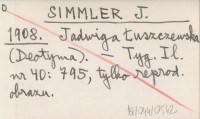 SIMMLER J.
1908. Jadwiga Łuszczewska
(Deotyma). — Tyg. Il.
nr 40: 795, tylko reprod.
obrazu.